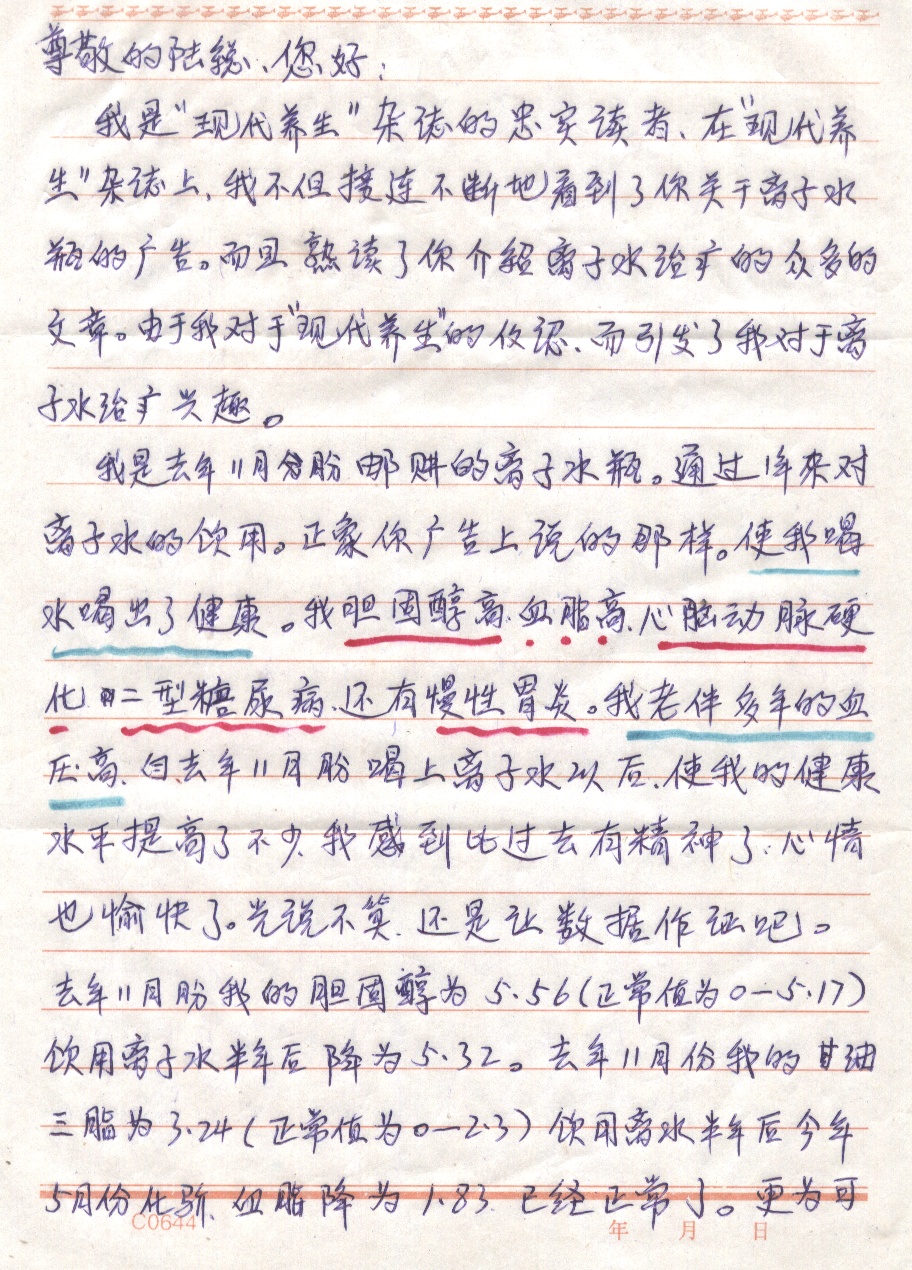 尊敬的陆总、您好：
我是"现代养生"杂志的忠实读者、在"现代养
生"杂志上，我不但接连不断地看到了你关于离子水
瓶的广告。而且熟读了你介绍离子水治疗的众多的
文章。由于我对于"现代养生"的认，而引发了我对于离
子水治疗兴趣。
我是去年11月份邮购的离子水瓶。通过1年来对
离子水的饮用。正象你广告上说的那样。使我喝
水喝出了健康。我胆固醇高、血脂高、心脑动脉硬
化、二型糖尿病、还有慢性胃炎。我老伴多年的血
压高、自去年11月份喝上离子水以后、使我的健康
水平提高了不少、我感到比过去有精神了，心情
也愉快了。光说不算、还是让数据作证吧。
去年11月份我的胆固醇为5.56（正常值为0—5.17）
饮用离子水半年后降为5.32。去年11月份我的甘油
三脂为3.24（正常值为0—2.3）饮用离水半年后今年
5月份化验、血脂降为1.83、已经正常了。更为可
C0644 年 月 日